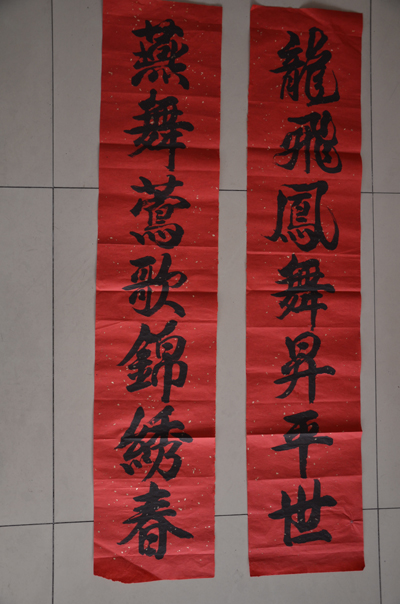 龍飛鳳舞昇平世
燕舞鶯歌錦綉春